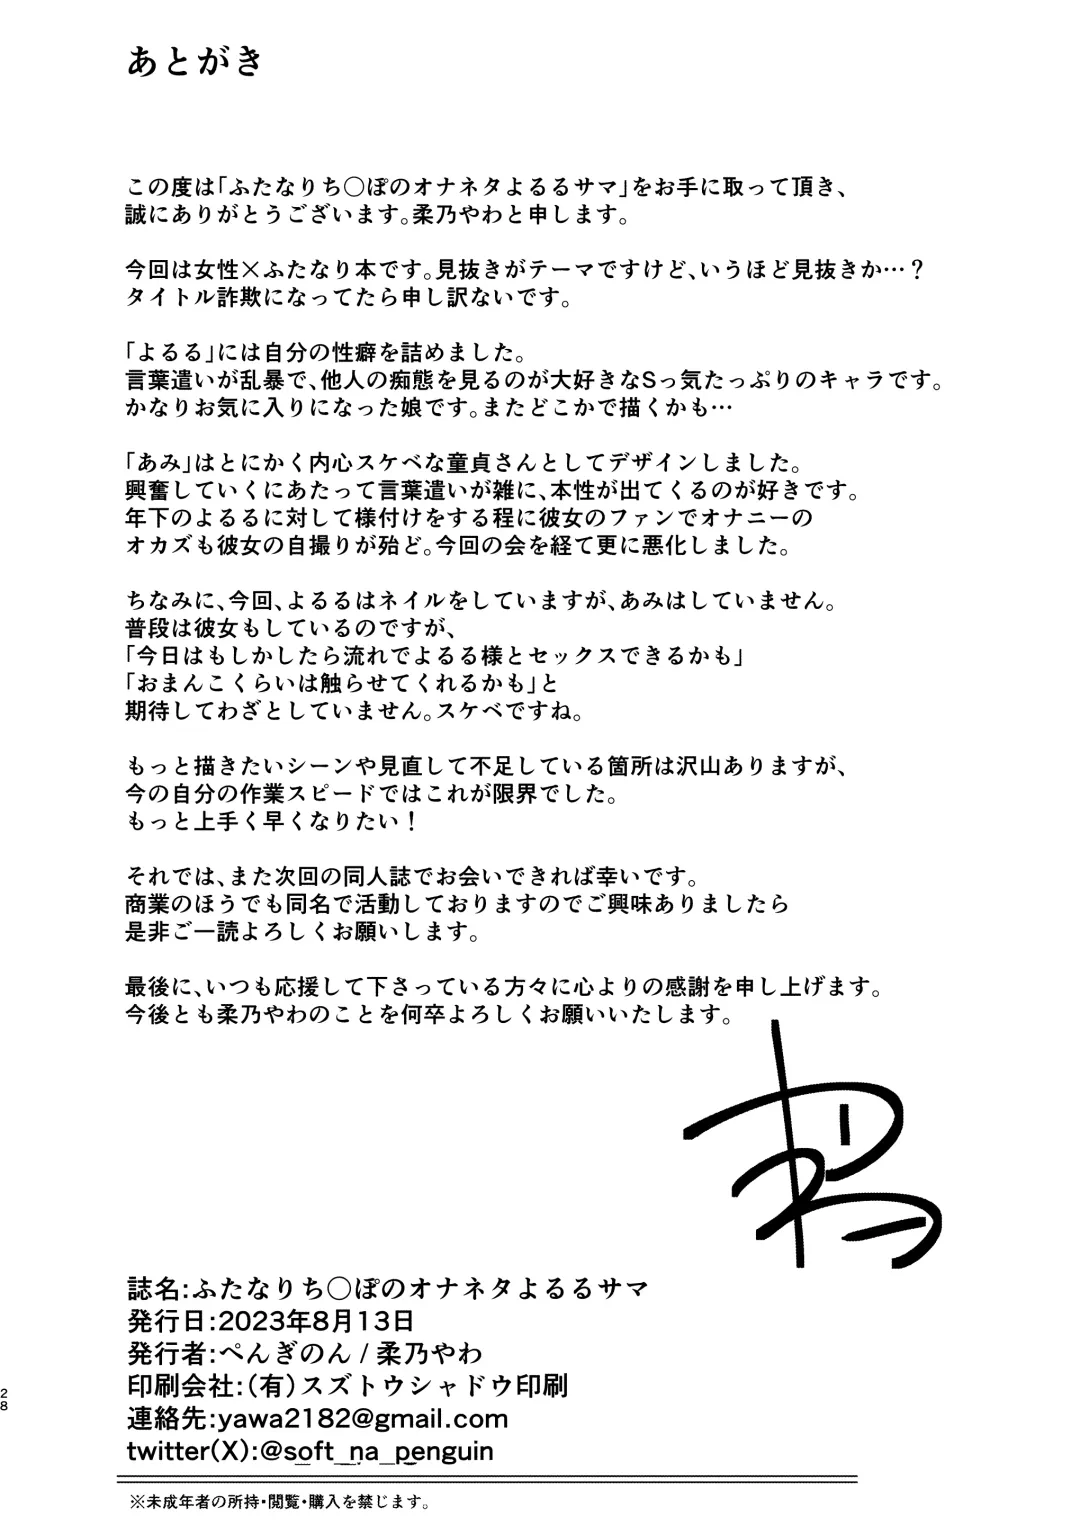 あとがき
この度は「ふたなりち〇ぽのオナネタよるるサマ」をお手に取って頂き、
誠にありがとうございます。柔乃やわと申します。
今回は女性×ふたなり本です。見抜きがテーマですけど、いうほど見抜きか…？
タイトル詐欺になってたら申し訳ないです。
「よるる」には自分の性癖を詰めました。
言葉遣いが乱暴で、他人の痴態を見るのが大好きなSっ気たっぷりのキャラです。
かなりお気に入りになった娘です。またどこかで描くかも…
「あみ」はとにかく内心スケベな童貞さんとしてデザインしました。
興奮していくにあたって言葉遣いが雑に、本性が出てくるのが好きです。
年下のよるるに対して様付けをする程に彼女のファンでオナニーの
オカズも彼女の自撮りが殆ど。今回の会を経て更に悪化しました。
ちなみに、今回、よるるはネイルをしていますが、あみはしていません。
普段は彼女もしているのですが、
「今日はもしかしたら流れでよるる様とセックスできるかも」
「おまんこくらいは触らせてくれるかも」と
期待してわざとしていません。スケベですね。
もっと描きたいシーンや見直して不足している箇所は沢山ありますが、
今の自分の作業スピードではこれが限界でした。
もっと上手く早くなりたい！
それでは、また次回の同人誌でお会いできれば幸いです。
商業のほうでも同名で活動しておりますのでご興味ありましたら
是非ご一読よろしくお願いします。
最後に、いつも応援して下さっている方々に心よりの感謝を申し上げます。
今後とも柔乃やわのことを何卒よろしくお願いいたします。
誌名:ふたなりち〇ぽのオナネタよるるサマ
発行日:2023年8月13日
発行者:ぺんぎのん / 柔乃やわ
印刷会社:（有）スズトウシャドウ印刷
連絡先:yawa2182@gmail.com
twitter(X):@soft_na_penguin
※未成年者の所持・閲覧・購入を禁じます。
28